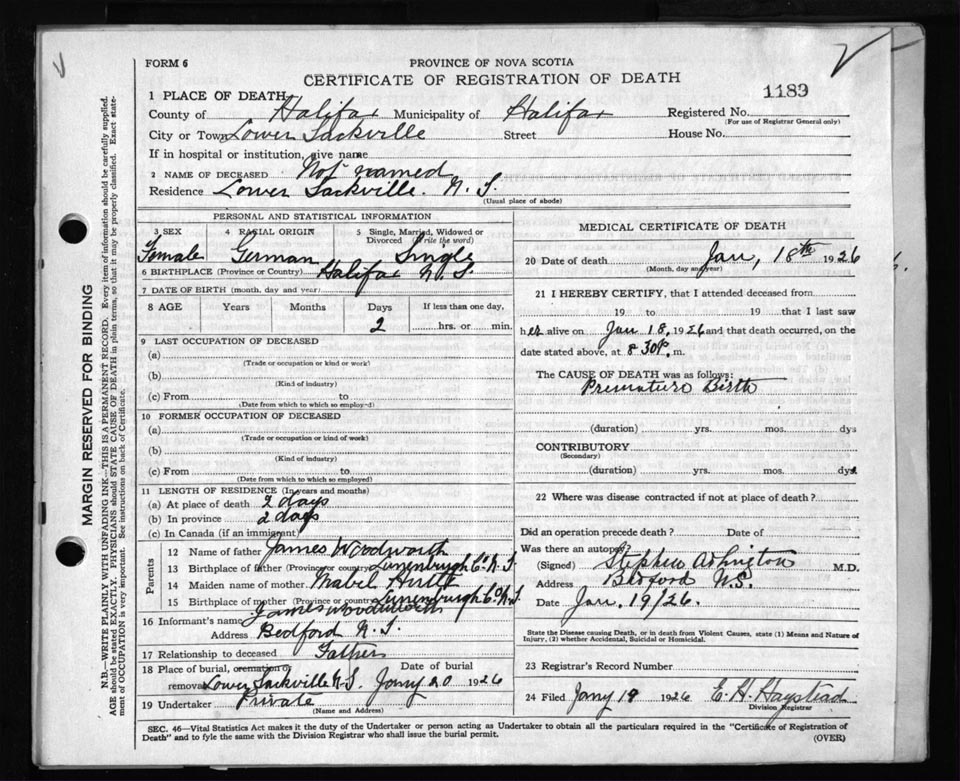 FORM 6
PROVINCE OF NOVA SCOTIA
CERTIFICATE OF REGISTRATION OF DEATH
1183
1 PLACE OF DEATH
County of Halifax Municipality of Halifax Registered No.
(For use of Registrar General only)
City or Town Lower Sackville Street House No.
If in hospital or institution, give name
2 NAME OF DECEASED Not named
Residence Lower Sackville. N. S.
(Usual place of abode)
PERSONAL AND STATISTICAL INFORMATION
3 SEX 4 RACIAL ORIGIN 5 Single, Married, Widowed or
Divorced (Write the word)
Female German Single
6 BIRTHPLACE (Province or Country) Halifax N. S.
7 DATE OF BIRTH (month, day and year)
8 AGE Years Months Days If less than one day,
2 hrs. or min.
9 LAST OCCUPATION OF DECEASED
(a)
(Trade or occupation or kind or work)
(b)
(Kind of industry)
(c) From to
(Date from which to which so employed)
10 FORMER OCCUPATION OF DECEASED
(a)
(Trade or occupation or kind of work)
(b)
(Kind of industry)
(c) From to
(Date from which to which so employed)
11 LENGTH OF RESIDENCE (In years and months)
(a) At place of death 2 days
(b) In province 2 days
(c) In Canada (if an immigrant)
Parents
12 Name of father James Woodworth
13 Birthplace of father (Province or country) Lunenburgh Co. N. S.
14 Maiden name of mother Mabel
15 Birthplace of mother (Province or country) Lunenburgh Co. N. S.
16 Informant's name James Woodworth
Address Bedford N. S.
17 Relationship to deceased Father
18 Place of burial, cremation or Date of burial
removal Lower Sackville N. S. Jany 20 1926
19 Undertaker Private
(Name and Address)
MEDICAL CERTIFICATE OF DEATH
20 Date of death Jan, 18th 1926
(Month, day and year)
21 I HEREBY CERTIFY, that I attended deceased from
19 to 19 that I last saw
her alive on Jan 18, 1926 and that death occurred, on the
date stated above, at 8 30 P. m.
The CAUSE OF DEATH was as follows:
Premature Birth
(duration) yrs. mos. dys
CONTRIBUTORY
(Secondary)
(duration) yrs. mos. dys.
22 Where was disease contracted if not at place of death?
Did an operation precede death? Date of
Was there an autopsy?
(Signed) Stephen M.D.
Address Bedford NS.
Date Jan. 19/26.
State the Disease causing Death, or in death from Violent Causes, state (1) Means and Nature of
Injury, (2) whether Accidental, Suicidal or Homicidal.
23 Registrar's Record Number
24 Filed Jany 19 1926 E. H. Haystead
Division Registrar
SEC. 46—Vital Statistics Act makes it the duty of the Undertaker or person acting as Undertaker to obtain all the particulars required in the "Certificate of Registration of
Death" and to fyle the same with the Division Registrar who shall issue the burial permit.
(OVER)
MARGIN RESERVED FOR BINDING
N.B.—WRITE PLAINLY WITH UNFADING INK—THIS IS A PERMANENT RECORD. Every item of information should be carefully supplied.
AGE should be stated EXACTLY. PHYSICIANS should STATE CAUSE OF DEATH in plain terms, so that it may be properly classified. Exact state-
ment of OCCUPATION is very important. See instructions on back of Certificate.